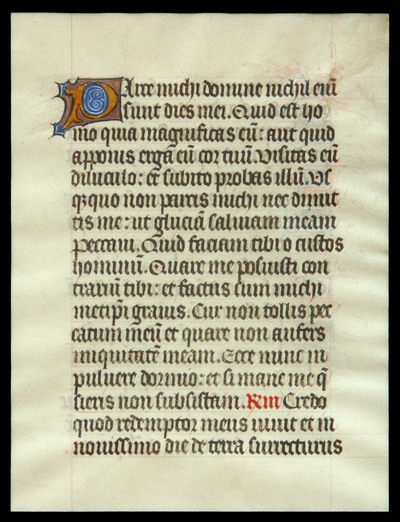 Parce michi domine nichil enī
sunt dies mei. Quid est ho
mo quia magnificas eū: aut quid
apponis erga eū cor tuū. Visitas eū
diluculo: et subito probas illū. Vs
q3quo non parcis michi nec dimit
tis me: ut gluciā saliuam meam
Peccaui. Quid faciam tibi o custos
hominū. Quare me posuisti con
trariū tibi: et factus sum michi
metip̄i grauis. Cur non tollis pec
catum meū et quare non aufers
iniquitatē meam. Ecce nunc in
puluere dormio: et si mane me q̄
sieris non subsistam. Rm Credo
quod redemptor meus uiuit et in
nouissimo die de terra surrecturus